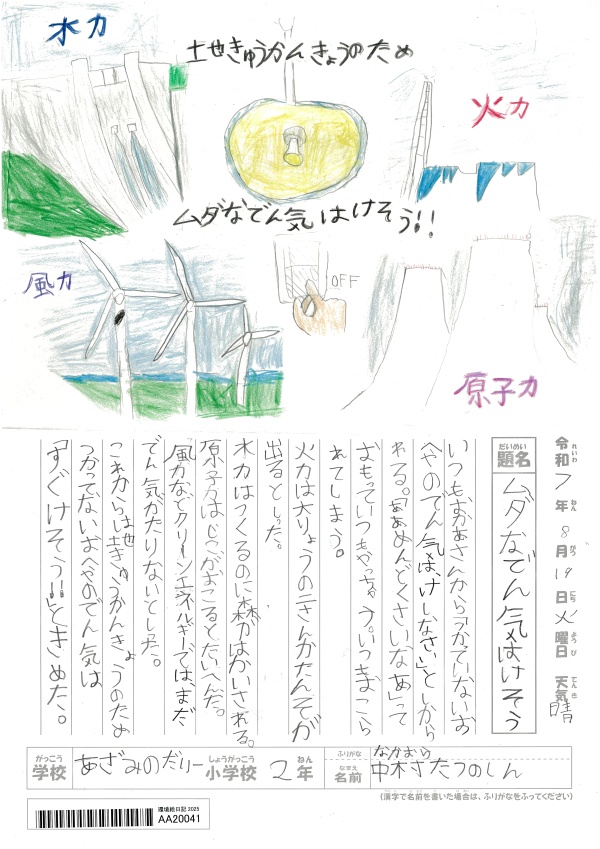 水力
土也きゅうかんきょうのため
火力
ムダなでん気はけそう!!
風力
OFF
原子力
令和7年8月19日火曜日 天気 晴
れいわ ねん がつ にち ようび てんき
だいめい
題名 ムダなでん気はけそう
いつもおかあさんから「つかっていないお
へやのでん気は、けしなさい」としから
れる。「あぁめんどくさいなあ」って
おもっていつもやっちゃう。いつもおこら
れてしまう。
火力は大りょうの二さんかたんそが
出るとしった。
水力はつくるのに森林がはかいされる。
原子力はじこがおこるとたいへんだ。
風力などクリーンエネルギーでは、まだ
でん気がたりないとしった。
これからは土也きゅうかんきょうのため
つかってないおへやのでん気は
「すぐけそう!!」ときめた。
がっこう しょうがっこう ねん ふりがな なかむら
学校 あざみのだい一 小学校 2年 なまえ 名前
(漢字で名前を書いた場合は、ふりがなをふってください)
環境絵日記 2025
AA20041